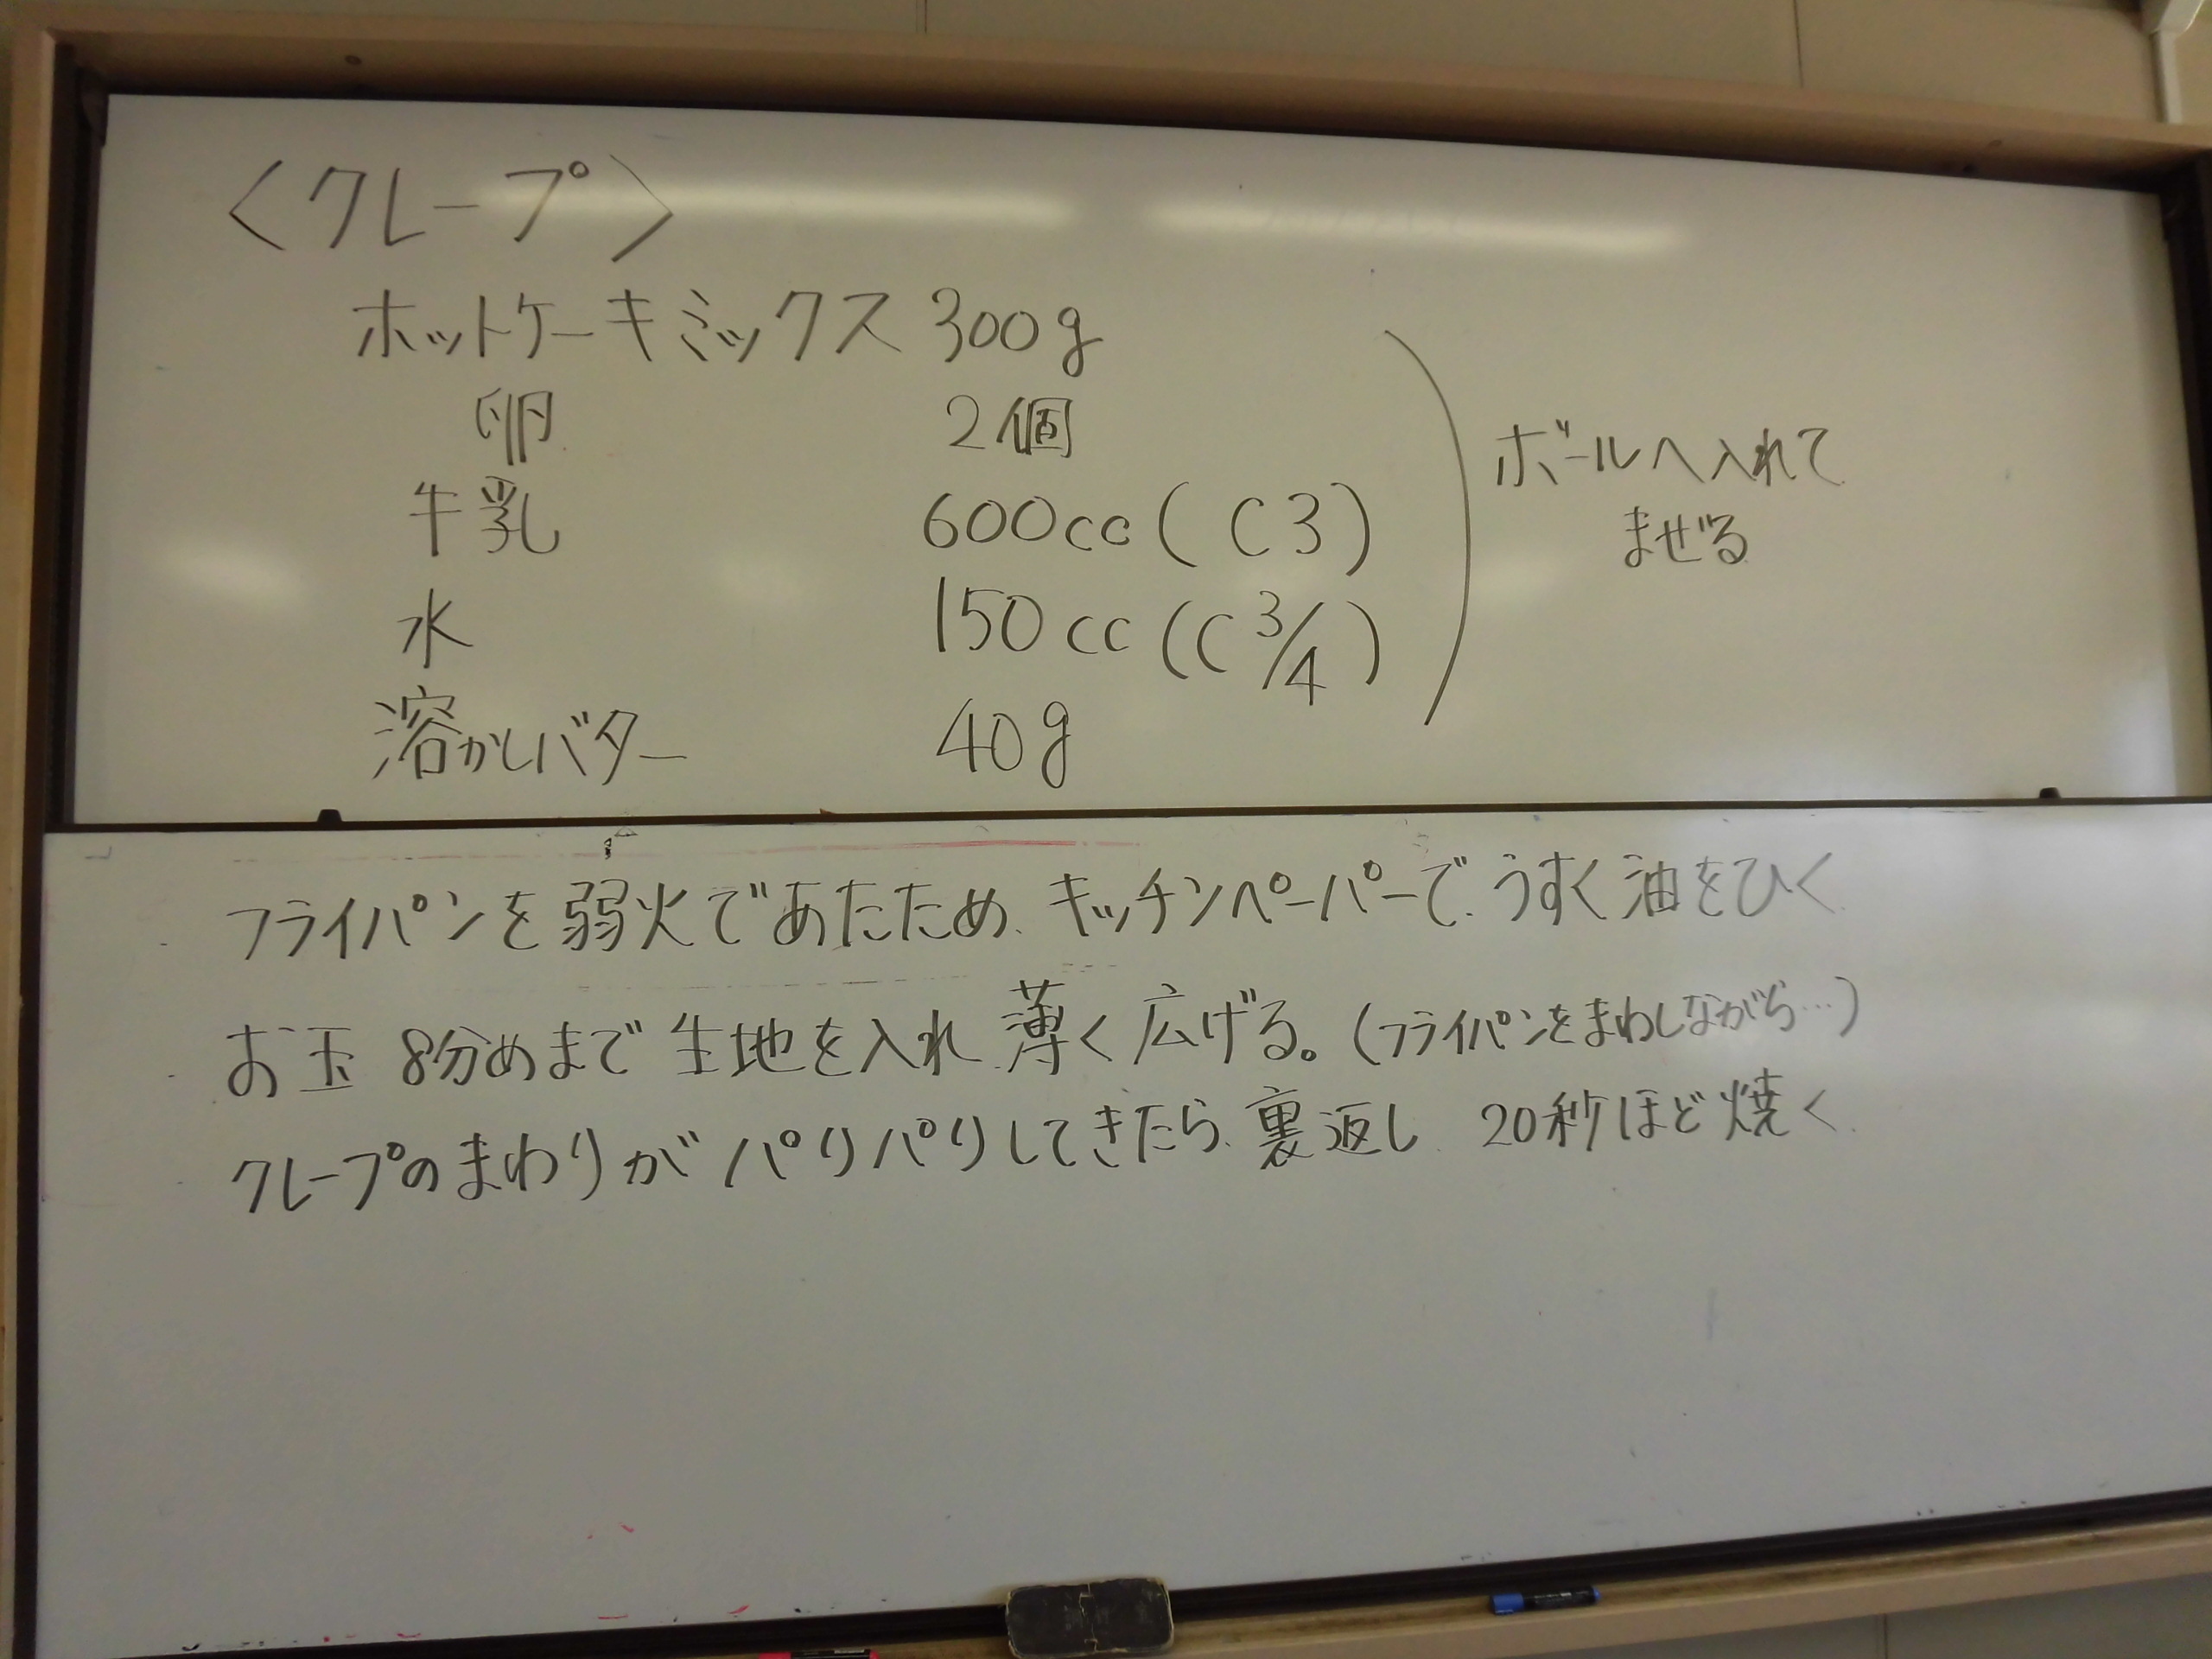 〈クレープ〉
ホットケーキミックス 300g
卵 2個
牛乳 600cc(C3)
水 150cc(C3/4)
溶かしバター 40g
ボールへ入れて
まぜる
フライパンを弱火であたため、キッチンペーパーで、うすく油をひく
お玉 8分めまで生地を入れ 薄く広げる。(フライパンをまわしながら…)
クレープのまわりがパリパリしてきたら、裏返し 20秒ほど焼く